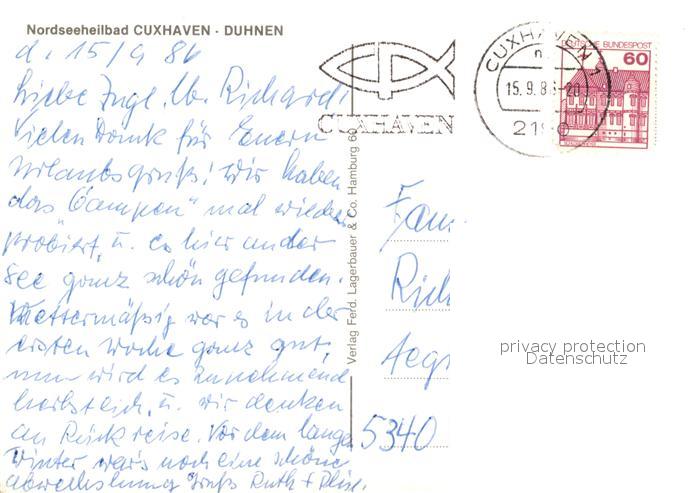 Nordseeheilbad CUXHAVEN · DUHNEN
d. 15/9 86
Liebe Inge, lb. Richard!
Vielen Dank für Euern
Urlaubsgruß! Wir haben
das "Campen" mal wieder
probiert, u. es hier an der
See ganz schön gefunden.
Wettermäßig war es in der
ersten Woche ganz gut,
nun wird es zunehmend
herbstlich, u. wir denken
an Rückreise. Vor dem langen
Winter war's noch eine schöne
Abwechslung Gruß Ruth +
Verlag Ferd. Lagerbauer & Co. Hamburg 60
CUXHAVEN
CUXHAVEN 1
15.9.86-20
219
DEUTSCHE BUNDESPOST
60
Fam.
Rich
Aegi
5340
privacy protection
Datenschutz